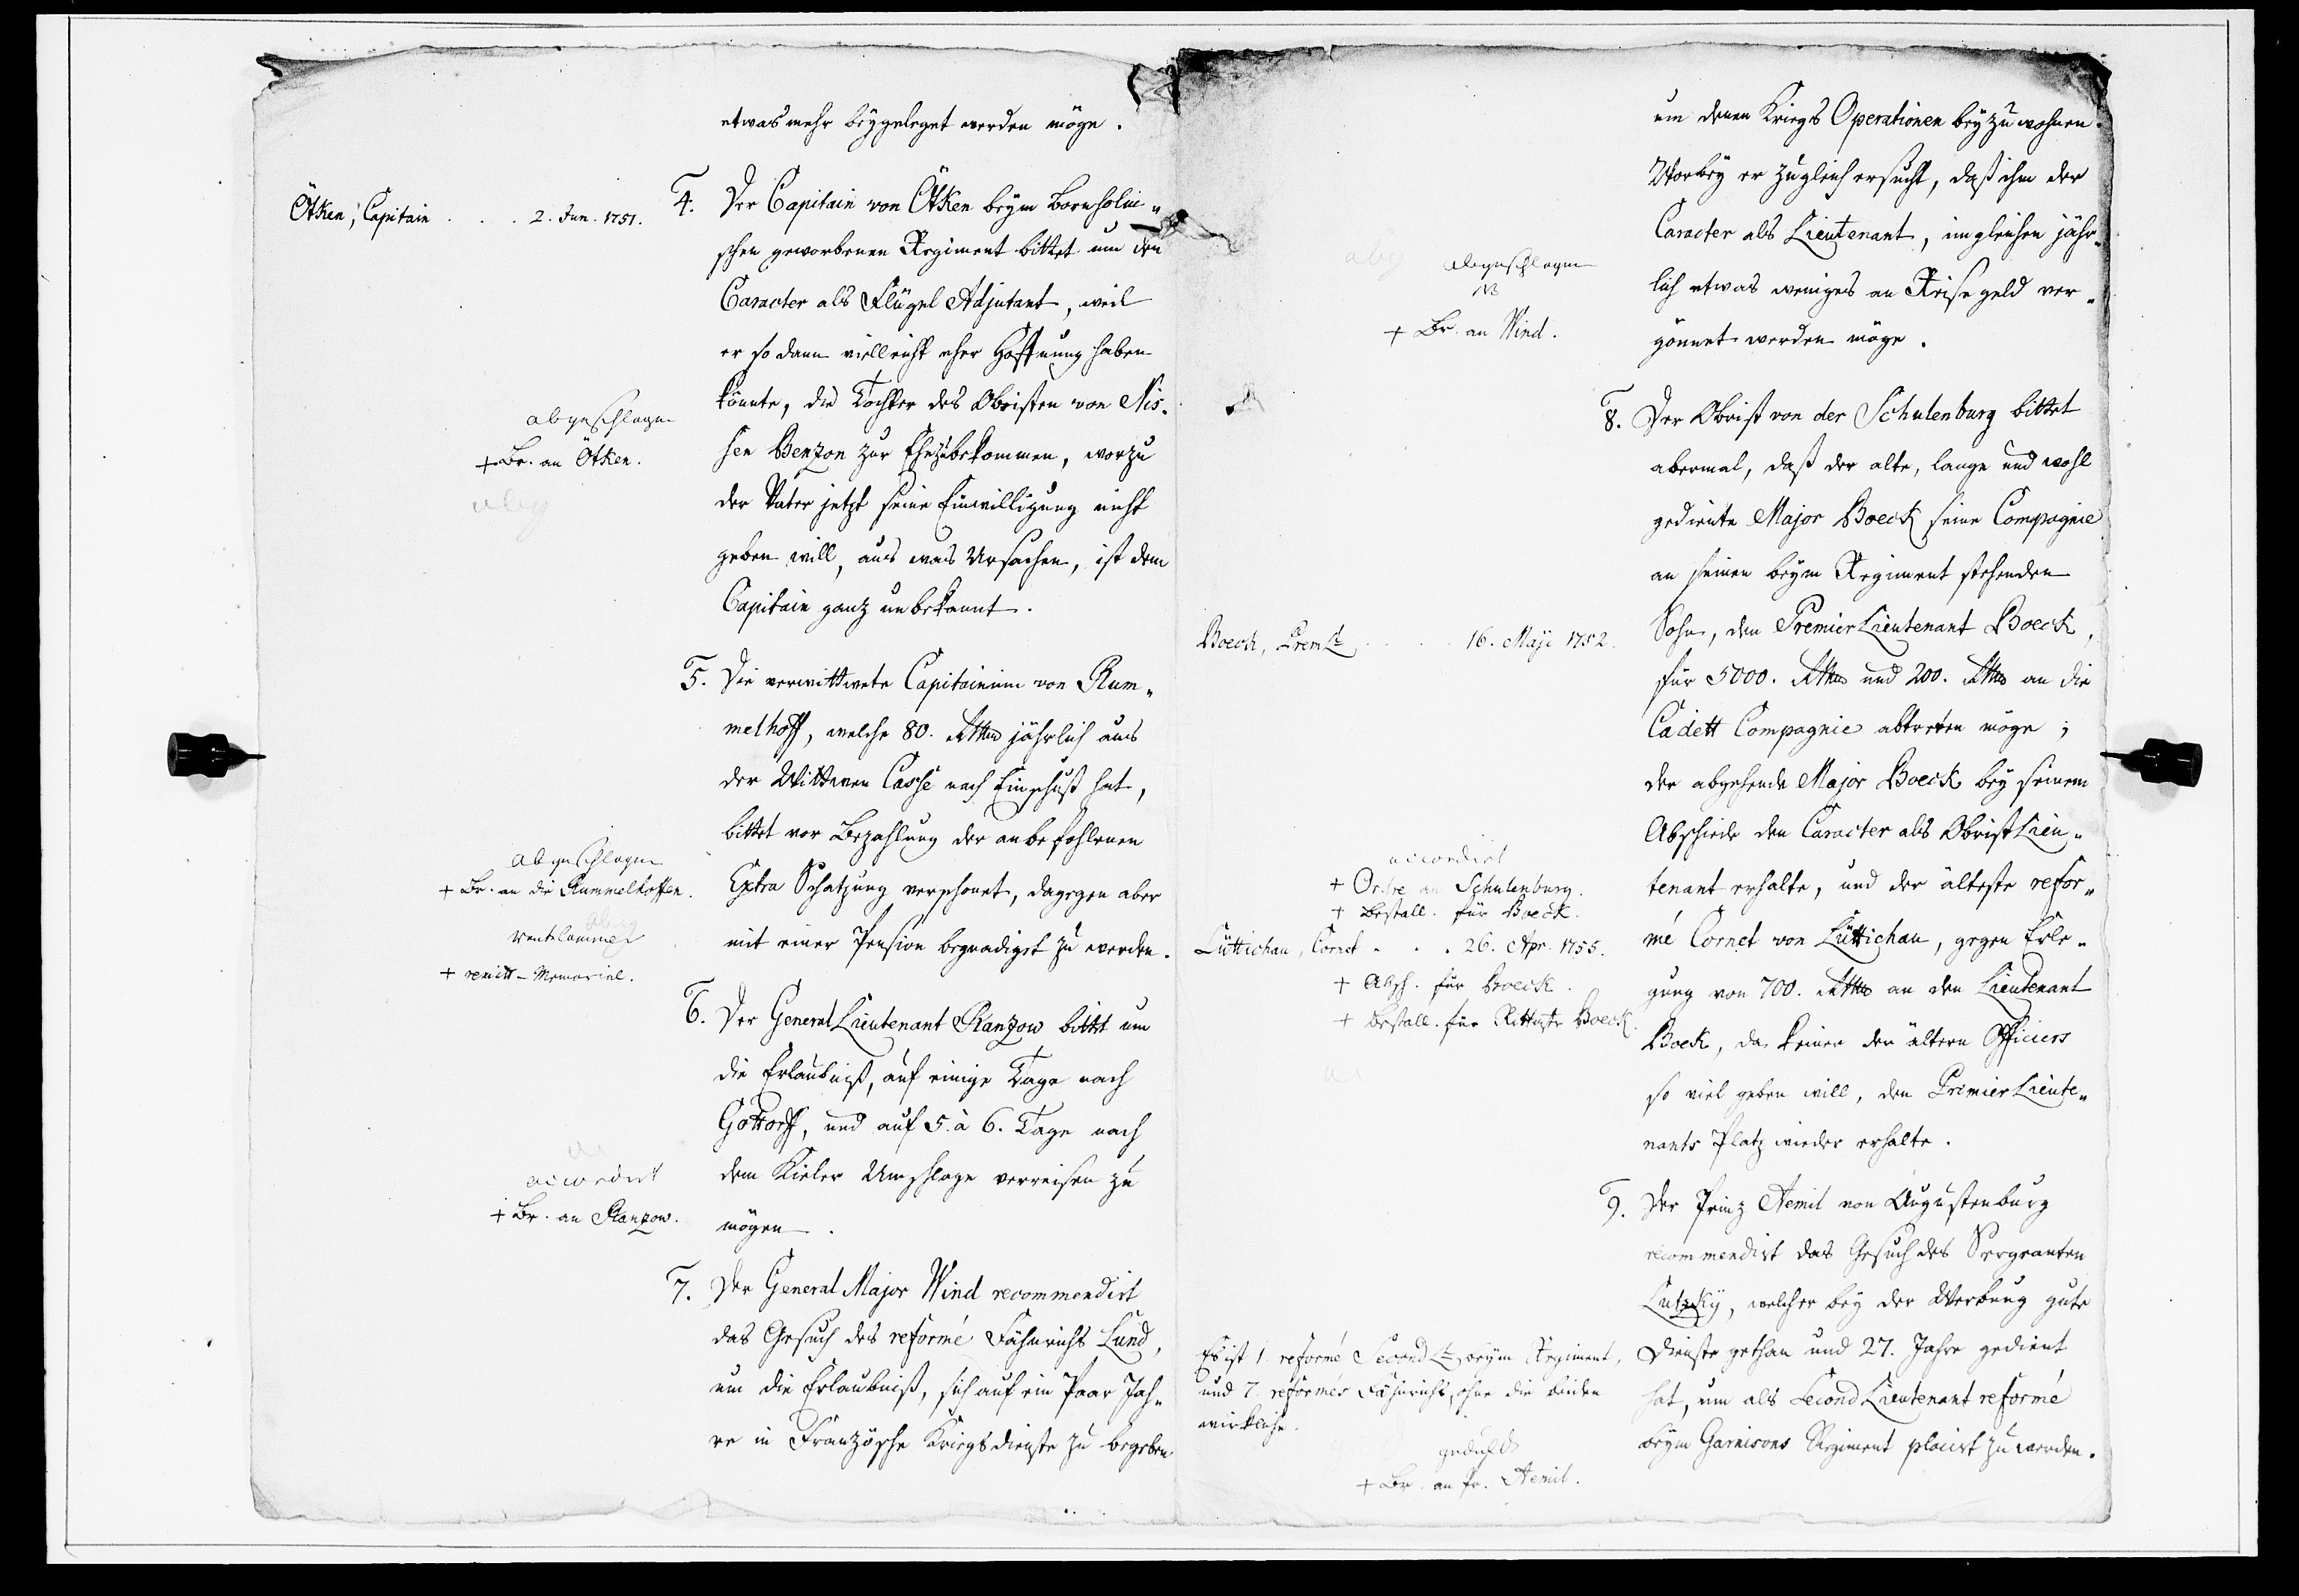 etwas mehr beygeleget werden möge.
Ötken, Capitain . . . 2. Jun. 1751.
4. Der Capitain von Ötken beym Bornholmi-
schen geworbenen Regiment bittet um den
Caracter als Flügel Adjutant, weil
er so dann vielleicht eher Hoffnung haben
könnte, die Tochter des Obristen von Nis-
sen Benzon zur Ehe zu bekommen, worzu
der Vater jetzt seine Einwilligung nicht
geben will, aus was Ursachen, ist dem
Capitain ganz unbekannt.
abgeschlagen
+ Br. an Ötken.
abg
5. Die verwittwete Capitainin von Rum-
melhoff, welche 80. Rthlr jährlich aus
der Wittwen Casse nach Einschuß hat,
bittet vor Bezahlung der anbefohlenen
Extra Schatzung verschonet, dagegen aber
mit einer Pension begnadiget zu werden.
abgeschlagen
+ Br. an die Rummelhoffen.
abg
Rentekammer
+ remitt-Memorial.
6. Der General Lieutenant Ranzow bittet um
die Erlaubniß, auf einige Tage nach
Gottorff, und auf 5. à 6. Tage nach
dem Kieler Umschlage verreisen zu
mögen.
ac
accordirt
+ Br. an Ranzow.
7. Der General Major Wind recommendirt
das Gesuch des reformé Fähnrichs Lund,
um die Erlaubniß, sich auf ein Paar Jah-
re in Französche Kriegsdienste zu begeben
um denen Kriegs Operationen beyzuwohnen.
Worbey er zugleich ersucht, daß ihm der
Caracter als Lieutenant, imgleichen jähr-
lich etwas weniges an Reisegeld ver-
gönnet werden möge.
abg abgeschlagen
NB
+ Br. an Wind.
8. Der Obrist von der Schulenburg bittet
abermal, daß der alte, lange und wohl
gediente Major Boeck seine Compagnie
an seinen beym Regiment stehenden
Sohn, den Premier Lieutenant Boeck,
für 5000. Rthlr und 200. Rthlr an die
Cadett Compagnie abtreten möge;
der abgehende Major Boeck bey seinem
Abschiede den Caracter als Obrist Lieu-
tenant erhalte, und der älteste refor-
mé Cornet von Lüttichau, gegen Erle-
gung von 700. Rthlr an den Lieutenant
Boeck, da keiner der ältern Officiers
so viel geben will, den Premier Lieute-
nants Platz wieder erhalte.
Boeck, Prem Lt . . . 16. Maji 1752.
accordirt
+ Ordre an Schulenburg.
+ Bestall. für Boeck.
Lüttichau, Cornet . . . 26. Apr. 1755.
+ Absch. für Boeck.
+ Bestall. für Rittmstr Boeck.
ac
9. Der Prinz Aemil von Augustenburg
recommendirt das Gesuch des Sergeanten
Lutzky, welcher bey der Werbung gute
Dienste gethan und 27. Jahre gedient
hat, um als Second Lieutenant reformé
beym Garnisons Regiment placirt zu werden.
Es ist 1 reformé Second Lt beym Regiment,
und 7. reformés Fähnrichs, ohne die beiden
wirkliche.
geduld
+ Br. an Pr. Aemil.